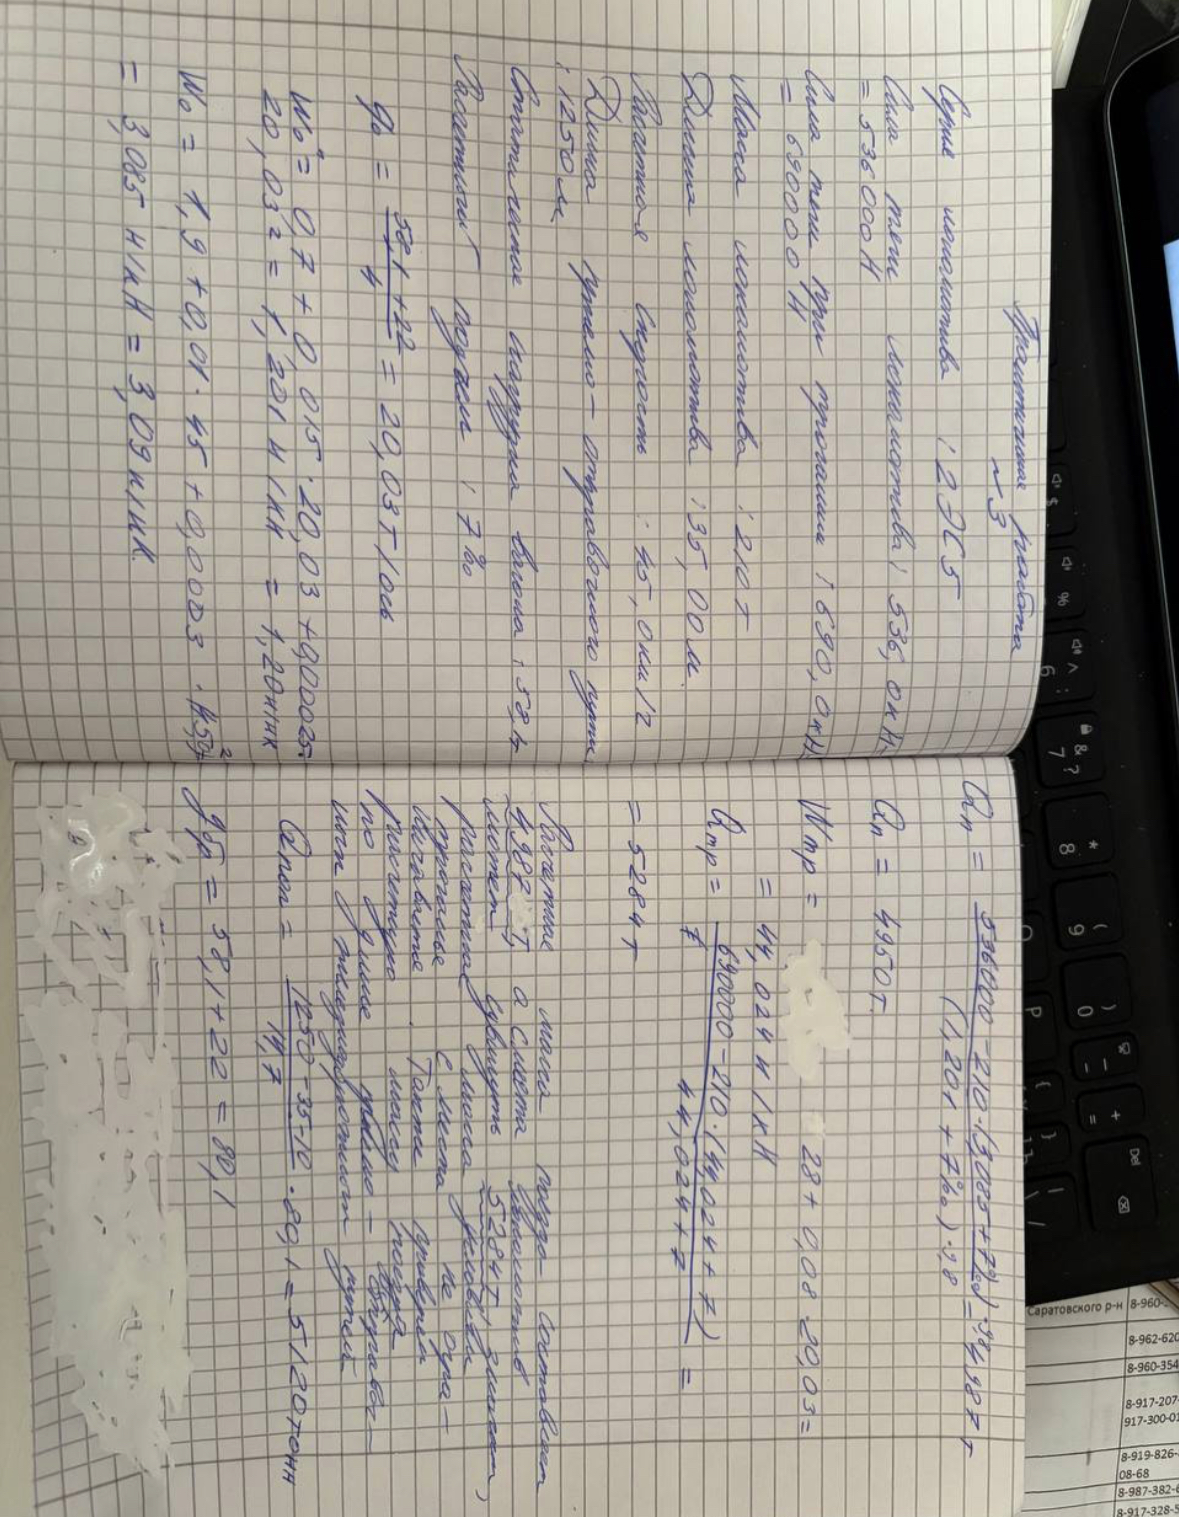 Практическая работа
~3
Серия локомотива : 2ЭС5
Сила тяги локомотива : 536,0кН
= 536 000 Н
Сила тяги при трогании : 690,0кН
= 690000 Н
Масса локомотива : 210 т
Длина локомотива : 35,00м.
Расчетная скорость : 45,0км/ч
Длина приемо-отправочного пути
: 1250м
Статическая нагрузка вагона : 58,1
Расчетный подъем : 7‰
q₀ = 58,1 + 22 / 4 = 20,03т/ось
W₀" = 0,7 + 0,015 · 20,03 + 0,00025
20,03² = 1,201 Н/кН = 1,20н/кк
W₀ = 1,9 + 0,01 · 45 + 0,0003 · (45)²
= 3,085 Н/кН = 3,09н/кк.
Qп = 536000 - 210 · (3,085 + 7‰) · 9,8 / (1,201 + 7‰) · 9,8
Qп = 4950т.
Wтр = 28 + 0,08 · 20,03 =
= 44,024 Н/кН
Qтр = 690000 - 210 · (44,024 + 7) / 44,024 + 7 =
= 5284 т
Расчетная масса поезда составляет
4987 т, а с места локомотив
может сдвинуть 5284т, значит,
расчетная масса
трогания с места не огра-
. Также
расчетную массу поезда
по длине приемо-отправоч-
путей
= 1250-35-10 / 14,7 · 80,1 = 5120тонн
qбр = 58,1 + 22 = 80,1
Del
Саратовского р-н
8-960-
8-962-620
8-960-354
8-917-207-
917-300-01
8-919-826-
08-68
8-987-382-
8-917-328-5